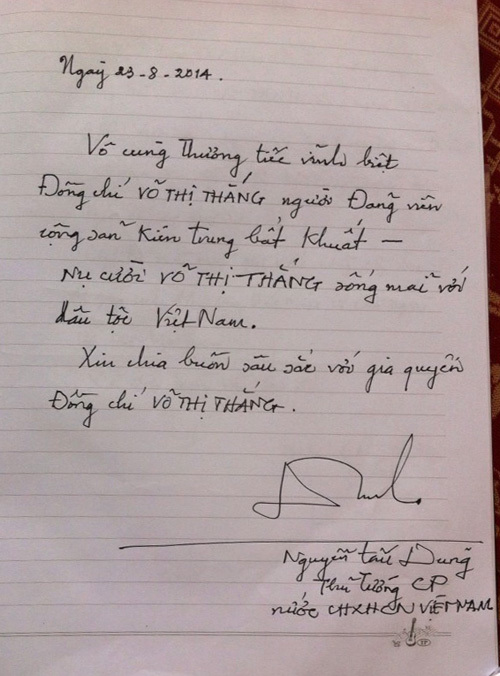 Ngày 23-8-2014.
Vô cùng thương tiếc vĩnh biệt
Đồng chí VÕ THỊ THẮNG người Đảng viên
cộng sản Kiên trung bất Khuất —
Nụ cười VÕ THỊ THẮNG sống mãi với
dân tộc Việt Nam.
Xin chia buồn sâu sắc với gia quyến
Đồng chí VÕ THỊ THẮNG.
Nguyễn Tấn Dũng
Thủ Tướng CP
nước CHXHCN VIỆT NAM